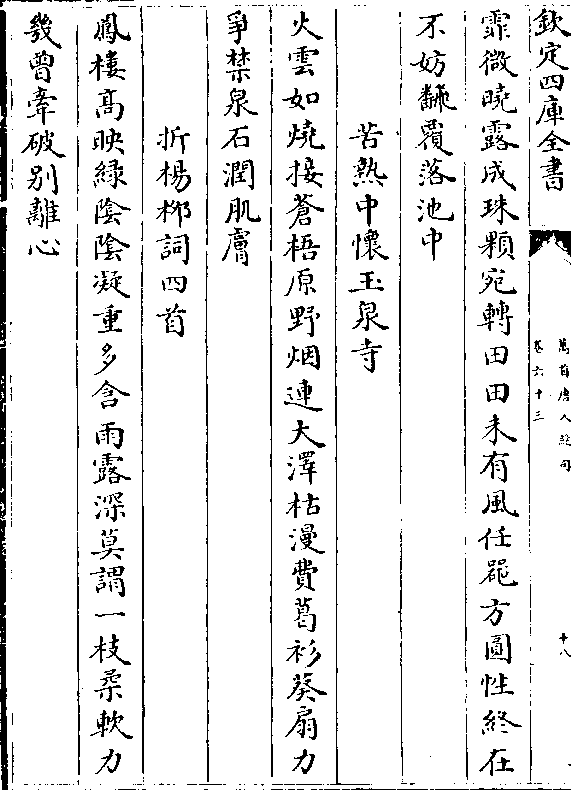 欽定四庫全書
萬首唐人絶句
卷六十三
十八
霏微曉露成珠顆宛轉田田未有風任器方圓性終在
不妨翻覆落池中
苦熱中懷玉泉寺
火雲如燒接蒼梧原野烟連大澤枯漫費葛衫葵扇力
爭禁泉石潤肌膚
折楊柳詞四首
鳳樓髙映緑隂隂凝重多含雨露深莫謂一枝柔軟力
幾曾牽破别離心